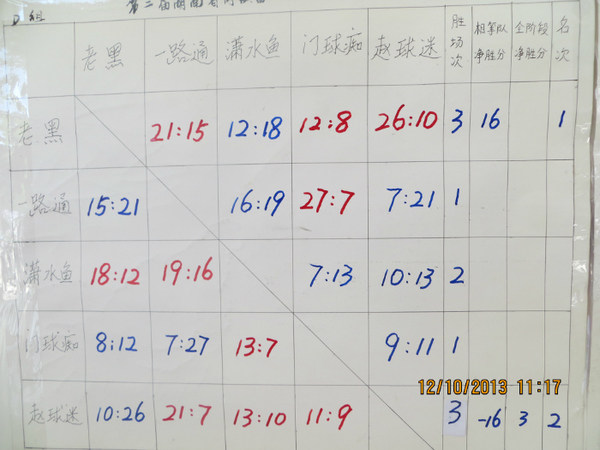 D 组
老黑 一路通 潇水鱼 门球痴 赵球迷 胜场次 相等队净胜分 全阶段净胜分 名次
老黑 21:15 12:18 12:8 26:10 3 16 1
一路通 15:21 16:19 27:7 7:21 1
潇水鱼 18:12 19:16 7:13 10:13 2
门球痴 8:12 7:27 13:7 9:11 1
12/10/2013 11:17
赵球迷 10:26 21:7 13:10 11:9 3 -16 3 2